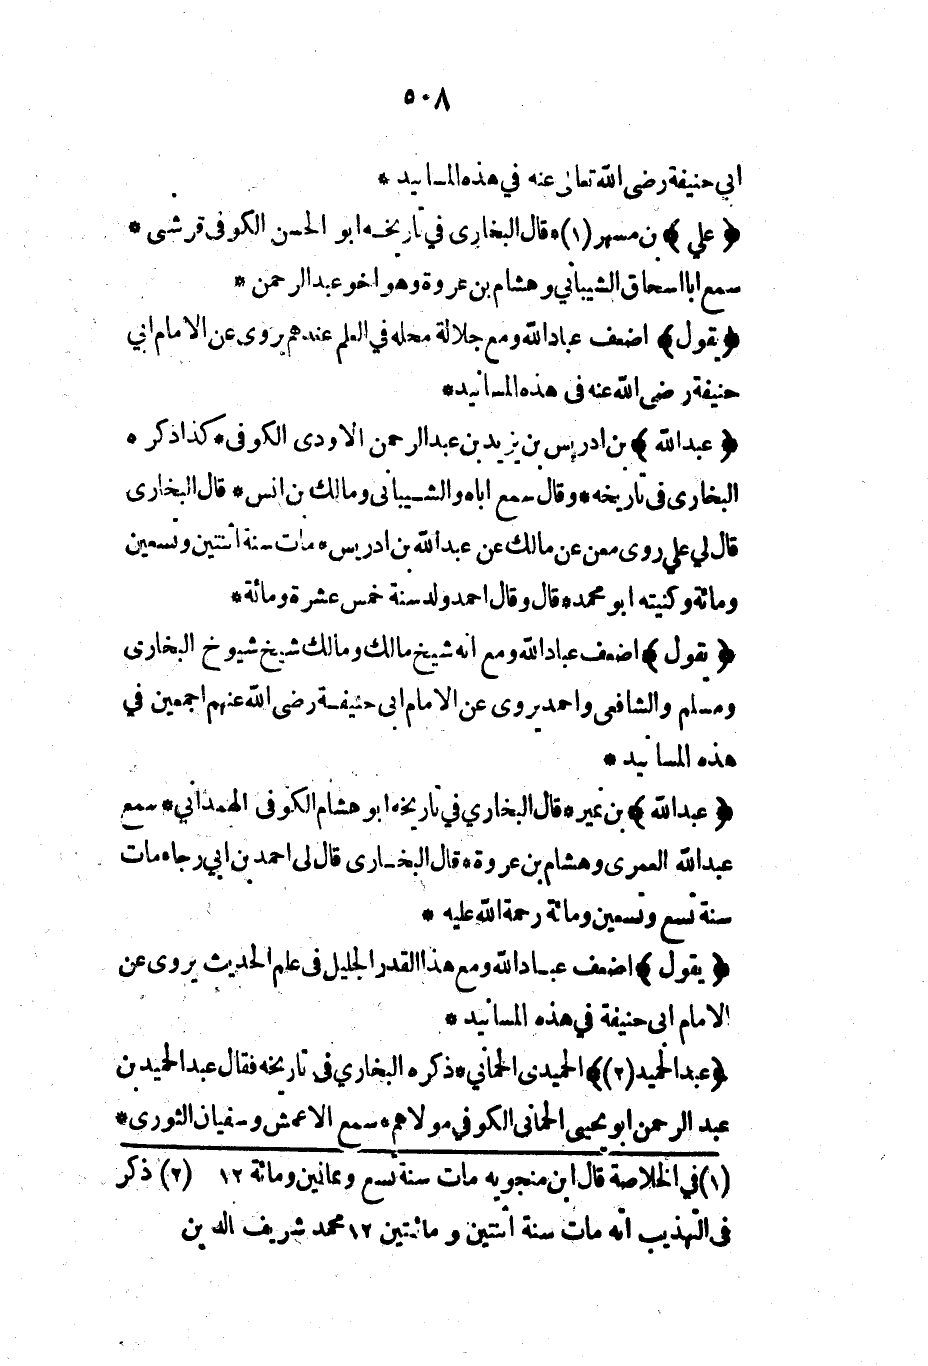 ٥٠٨
ابي حنيفة رضى الله تعالى عنه في هذه المسانيد *
﴿ علي ﴾ بن مسهر (١) * قال البخارى في تاريخه ابو الحسن الكوفى قرشى *
سمع ابا اسحاق الشيباني وهشام بن عروة وهو اخو عبد الرحمن *
﴿ يقول ﴾ اضعف عباد الله ومع جلالة محله في العلم عندهم يروى عن الامام ابي
حنيفة رضى الله عنه فى هذه المسانيد *
﴿ عبد الله ﴾ بن ادريس بن يزيد بن عبد الرحمن الاودى الكوفى * كذا ذكره
البخارى فى تاريخه * وقال سمع اباه والشيبانى ومالك بن انس * قال البخارى
قال لي علي روى معن عن مالك عن عبد الله بن ادريس * مات سنة اثنتين وتسعين
ومائة وكنيته ابو محمد * قال وقال احمد ولد سنة خمس عشرة ومائة *
﴿ يقول ﴾ اضعف عباد الله ومع انه شيخ مالك ومالك شيخ شيوخ البخارى
ومسلم والشافعى واحمد يروى عن الامام ابى حنيفة رضى الله عنهم اجمعين في
هذه المسانيد *
﴿ عبد الله ﴾ بن نمير * قال البخاري في تاريخه ابو هشام الكوفى الهمداني * سمع
عبد الله العمرى وهشام بن عروة * قال البخارى قال لى احمد بن ابي رجاء مات
سنة تسع وتسعين ومائة رحمة الله عليه *
﴿ يقول ﴾ اضعف عباد الله ومع هذا القدر الجليل فى علم الحديث يروى عن
الامام ابى حنيفة في هذه المسانيد *
﴿ عبد الحميد (٢) ﴾ الحميدى الحماني * ذكره البخاري فى تاريخه فقال عبد الحميد بن
عبد الرحمن ابو يحيى الحمانى الكوفي مولاهم * سمع الاعمش وسفيان الثورى *
(١) في الخلاصة قال ابن منجويه مات سنة تسع وثمانين ومائة ١٢ (٢) ذكر
فى التهذيب انه مات سنة اثنتين و مائتين ١٢ محمد شريف الدين